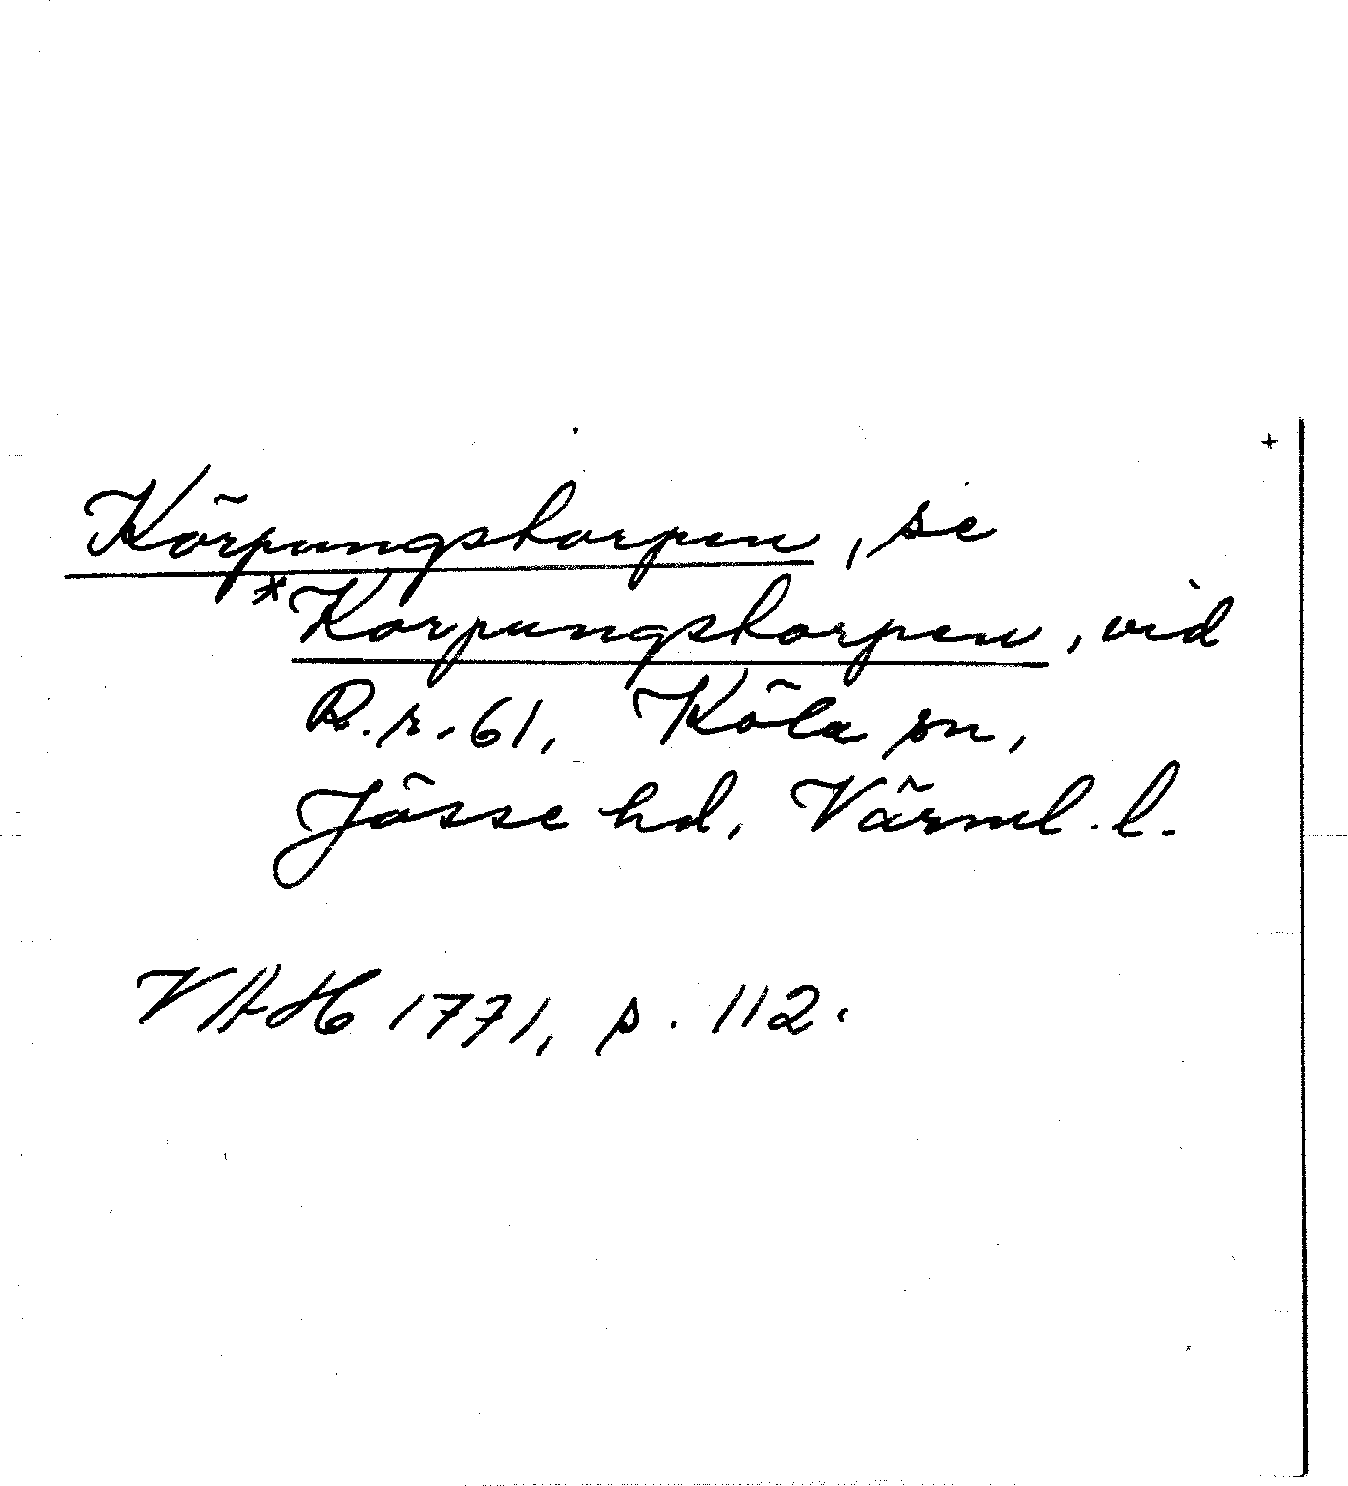 +
Körpungstorpen, se
*Korpungstorpen, vid
R.r. 61, Köla sn,
Jösse hd, Värml. l.
VAH 1771, p. 112.